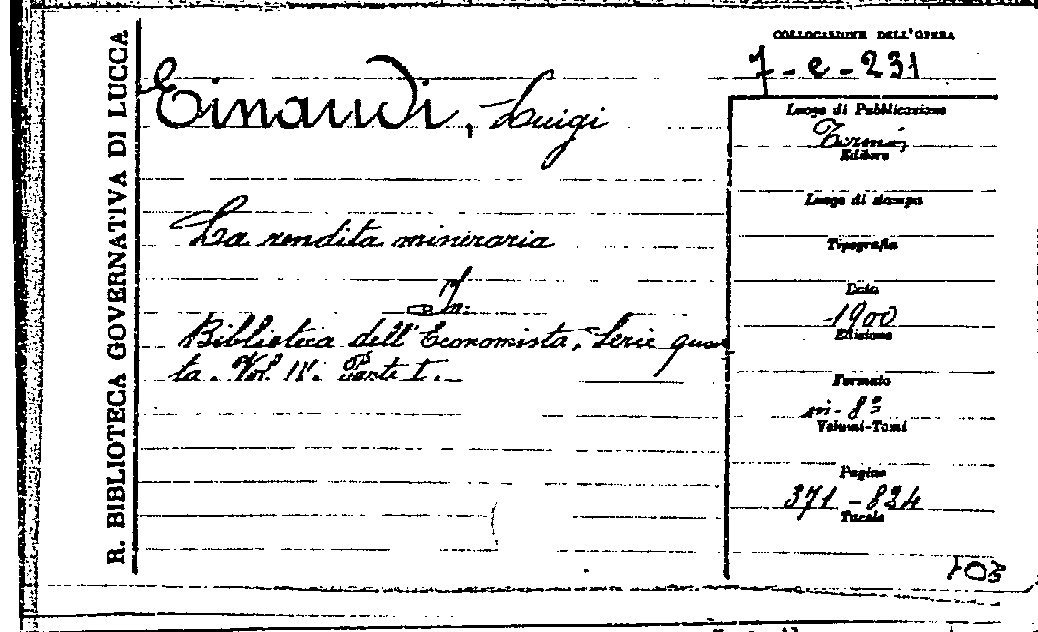 R. BIBLIOTECA GOVERNATIVA DI LUCCA
COLLOCAZIONE DELL'OPERA
7-e-231
Einaudi, Luigi
La rendita mineraria
in:
Biblioteca dell'Economista, Serie quar
ta. Vol. IV. Parte I.
Luogo di Pubblicazione
Torino,
Editore
Luogo di stampa
Tipografia
Data
1900
Edizione
Formato
in-8º
Volumi-Tomi
Pagine
371-824
Tavole
703